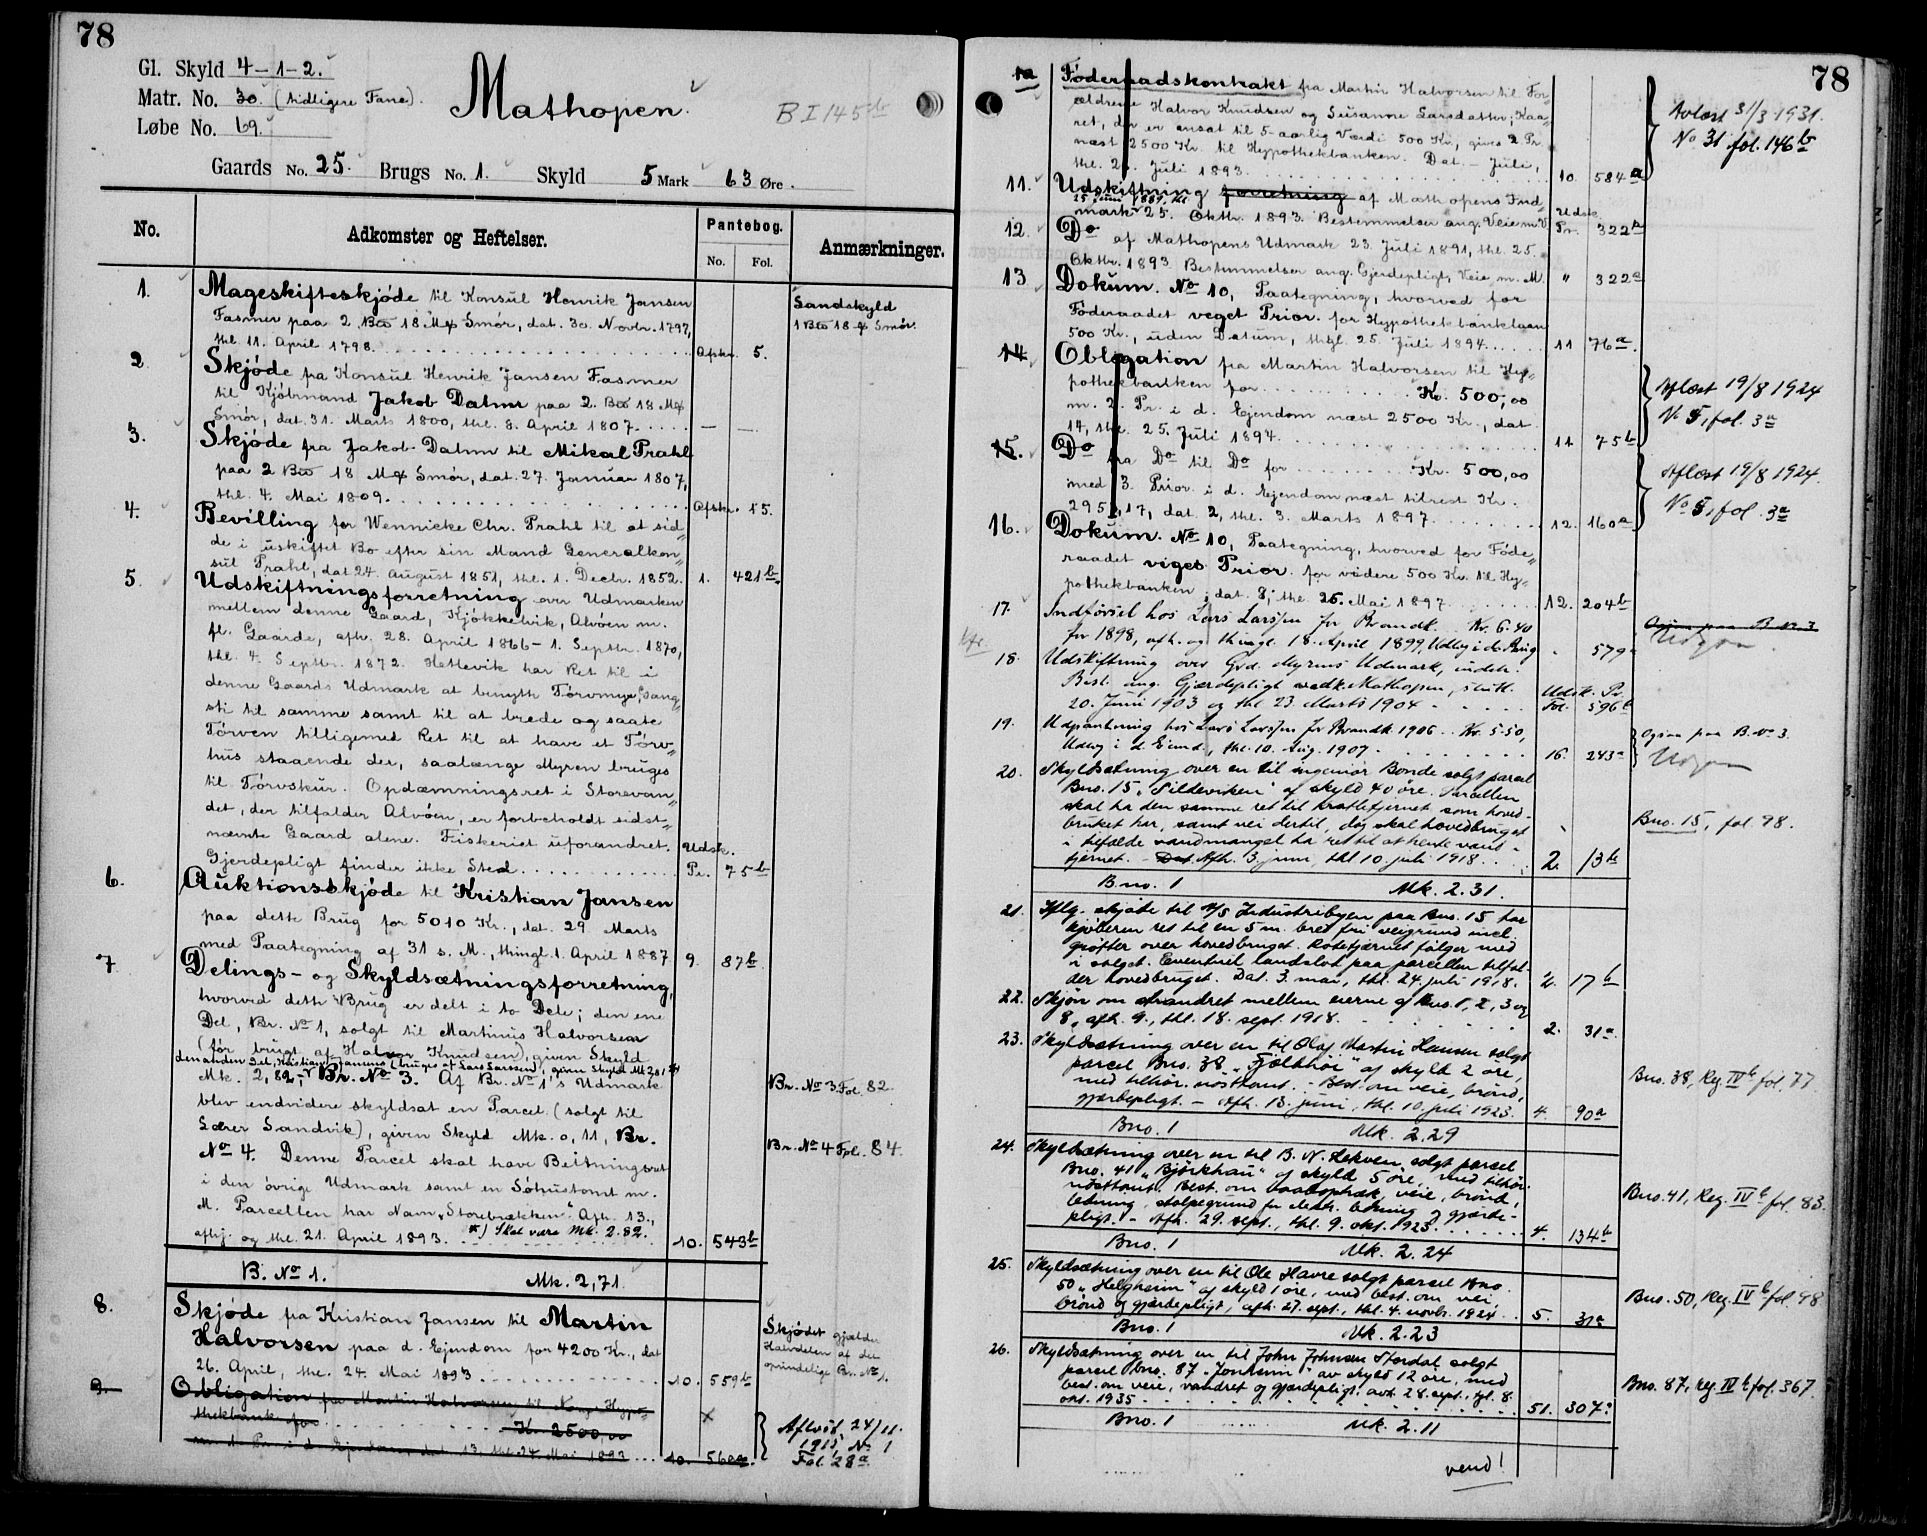 78
Gl. Skyld 4-1-2.
Matr. No. 30. (tidligere Fane).
Løbe No. 69.
Mathopen
B I 145b
Gaards No. 25. Brugs No. 1. Skyld 5 Mark 63 Øre.
No.
Adkomster og Heftelser.
Pantebog.
No. Fol.
Anmærkninger.
1. Mageskifteskjøde til Konsul Henrik Jansen
Fasmer paa 2 Bπ 18 M℔ Smør, dat. 30. Novbr. 1797,
thl. 11. April 1798. Afskr. 5.
Landskyld
1 Bπ 18 ℔ Smør.
2 Skjøde fra Konsul Henrik Jansen Fasmer
til Kjøbmand Jakob Dahm paa 2. Bπ 18 M℔
Smør, dat. 31. Marts 1800, thl. 8. April 1807. — —
3. Skjøde fra Jakob Dahm til Mikal Prahl
paa 2 Bπ 18 M℔ Smør, dat. 27. Januar 1807,
thl. 4. Mai 1809. Afskr. 15.
4. Bevilling for Wennicke Chr. Prahl til at sid„
de i uskiftet Bo efter sin Mand Generalkon„
sul Prahl, dat 24. August 1851, thl. 1. Decbr. 1852. 1. 421b.
5. Udskiftningsforretning over Udmarken
mellem denne Gaard, Kjøkkelvik, Alvøen m.
fl. Gaarde, afh. 28. April 1866 - 1. Septbr. 1870,
thl. 4. Septbr. 1872. Hettevik har Ret til i
denne Gaards Udmark at benytte Torvmyr, Gang„
sti til samme samt til at brede og saate
Torven tilligemed Ret til at have et Torv„
hus staaende der, saalænge Myren bruges
til Torvskur. Opdæmningsret i Storevan„
det, der tilfalder Alvøen, er forbeholdt sidst„
nævnte Gaard alene. Fiskeriet uforandret.
Gjerdepligt finder ikke Sted. Udsk. Pr. 75b
6. Auktionsskjøde til Kristian Jansen
paa dette Brug for 5010 Kr., dat. 29. Marts
med Paategning af 31 s. M., thingl. 1. April 1887 9. 87b
7 Delings- og Skyldsætningsforretning,
hvorved dette Brug er delt i to Dele; den ene
Del, Br. No 1, solgt til Martinus Halvorsen
(før brugt af Halvor Knudsen), given Skyld
den anden Del, Kristian Jansens (bruges af Lars Larssen), given Skyld Mk 2,81 *)
Mk. 2,82, Br. No 3. Af Br. No 1's Udmark
blev endvidere skyldsat en Parcel (solgt til
Lærer Sandvik), given Skyld Mk. 0,11, Br.
No 4. Denne Parcel skal have Beitningsret
i den øvrige Udmark samt en Søhustomt m.
M. Parcellen har Navn „Storebrækken". Afh. 13.,
afhj. og thl. 21. April 1893. *) Skal være Mk. 2.82. 10. 543b
Br. No 3 Fol. 82.
Br. No 4 Fol. 84.
B. No 1. Mk. 2,71.
8. Skjøde fra Kristian Jansen til Martin
Halvorsen paa d. Ejendom for 4200 Kr., dat
26. April, thl. 24. Mai 1893 10. 559b
Skjødet gjælder
Halvdelen af det
oprindelige Br. No 1.
9. Obligation fra Martin Halvorsen til Norges Hypo„
thekbank for Kr. 2500,00
m. 1. Pr. i d. Ejendom, dat. 13, thl. 24. Mai 1893 10. 560a.
Aflyst 24/11.
1915, No 1
Fol. 28a.
78
10 Føderaadskontrakt fra Martin Halvorsen til For„
ældrene Halvor Knudsen og Susanne Larsdatter; Kaa„
ret, der er ansat til 5-aarlig Værdi 500 Kr., gives 2 Pr.
næst 2500 Kr. til Hypothekbanken. Dat. - Juli,
thl. 2 . Juli 1893. 10. 584a
Avlæst 31/3 1931.
No 31 fol. 146b
11. Udskiftning forretning af Mathopens Ind„
25 Juni 1889, thl.
mark 25. Oktbr. 1893. Bestemmelser ang. Veie m. V. Udsk. Pr. 322a
12. Do af Mathopens Udmark 23. Juli 1891, thl. 25.
Oktbr. 1893. Bestemmelser ang. Gjerdepligt, Veie m. M. " 322a
13 Dokum. No 10, Paategning, hvorved for
Føderaadet veget Prior. for Hypothekbanklaan
500 Kr., uden Datum, thgl. 25. Juli 1894. 11 76a.
14 Obligation fra Martin Halvorsen til Hy„
pothekbanken for Kr. 500,00
m. 2. Pr. i d. Ejendom næst 2500 Kr., dat
14, thl. 25. Juli 1894. 11 75b
Aflæst 19/8 1924
No 5, fol. 3a
15. Do fra Do til Do for Kr. 500,00
med 3. Prior. i d. Ejendom næst tilrest Kr.
295 ,17, dat. 2, thl. 3. Marts 1897. 12. 160a
Aflæst 19/8 1924.
No 5, fol. 3a
16. Dokum. No 10, Paategning, hvorved for Føde„
raadet viges Prior. for videre 500 Kr. til Hy„
pothekbanken, dat. 8, thl. 26. Mai 1897. 12. 204b
17. Indførsel hos Lars Larssen for Brandk. Kr. 6.40
for 1898, afh. og thingl. 18. April 1899, Udlæg i d. Brug - 579a
Ogsaa paa B. No 3
Udgaar
18. Udskiftning over Grd. Myrens Udmark, indeh.
Best. ang. Gjærdepligt vedk. Mathopen, slutt.
20. Juni 1903 og thl 23. Marts 1904 Udsk. Pr. Fol. 596b
19. Udpantning hos Lars Larssen for Brandk 1906. Kr. 5.50,
Udlæg i d. Eiend., thl. 10. Aug. 1907. 16. 243a
Ogsaa paa B. No 3.
Udgaar
20. Skyldsætning over en til ingeniør Bonde solgt parcel
Bno. 15, "Sildeviken" af skyld 40 øre. Parcellen
skal ha den samme ret til kratletjernet som hoved-
bruket har, samt vei dertil, dog skal hovedbruget
i tilfælde vandmangel ha ret til at hente vand i
tjernet. - Dat. Afh. 3. juni, thl 10. juli 1918. 2. 13b
Bno. 15, fol. 98.
Bno. 1 Mk. 2.31.
21. Iflg. skjøte til A/S Industribyen paa Bno. 15 har
kjøberen ret til en 5 m. bred fri veigrund incl.
grøfter over hovedbruget. Rotetjernet følger med
i salget. Eventuel landslot paa parcellen tilfal-
der hovedbruget. Dat. 3. mai, thl. 24. juli 1918. 2. 17b
22. Skjøn om strandret mellem eierne af Bno. 1, 2, 3 og
8, afh. 9., thl. 18. sept. 1918. 2. 31a
23. Skyldsætning over en til Olaf Martin Hansen solgt
parcel Bno. 38 "Fjeldhøi" af skyld 2 øre,
med tilhør. nosttomt. - Best. om veie, brønd,
gjærdepligt. - Afh. 13. juni, thl. 10. juli 1923. 4. 90a
Bno. 38, Reg. IVb fol. 77
Bno. 1 Mk. 2,29
24. Skyldsætning over en til B. N. Lekven solgt parcel
Bno. 41 "Bjørkhau" af skyld 5 øre, med tilhør.
nosttomt. Best. om baatoptræk, veie, brønd,
ledning, stolpegrund for elektr. ledning og gjærde-
pligt. - Afh. 29. sept., thl. 9. okt. 1923. 4. 134b
Bno. 41, Reg. IVb fol. 83.
Bno. 1 Mk. 2.24
25. Skyldsætning over en til Ole Havre solgt parcel Bno.
50 "Helgheim" af skyld 1 øre, med best. om vei
brønd og gjærdepligt, afh. 27. sept., thl. 4. novbr. 1924 5. 31a
Bno. 50, Reg. IVb fol. 98
Bno. 1 Mk. 2.23
26. Skyldsætning over en til John Johnsen Stordal solgt
parcel bno. 87 "Jonheim" av skyld 12 øre, med
best. om veie, vandret og gjærdepligt. avh. 28. sept., tgl. 8.
okt. 1935 51. 307a
Bno. 87, reg. IVb fol. 367.
Bno. 1 Mk. 2.11
vend!